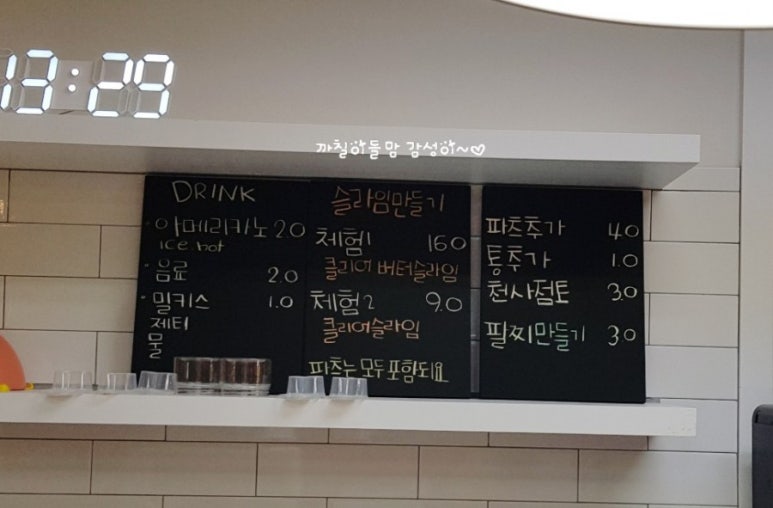 13:29
까칠한들맘 감성하~♡
DRINK
아메리카노 2.0
ice.hot
음료 2.0
밀키스 1.0
제티
물
슬라임만들기
체험1 16.0
클리어 버터슬라임
체험2 9.0
클리어슬라임
파츠는 모두 포함되요
파츠추가 4.0
통추가 1.0
천사점토 3.0
팔찌만들기 3.0